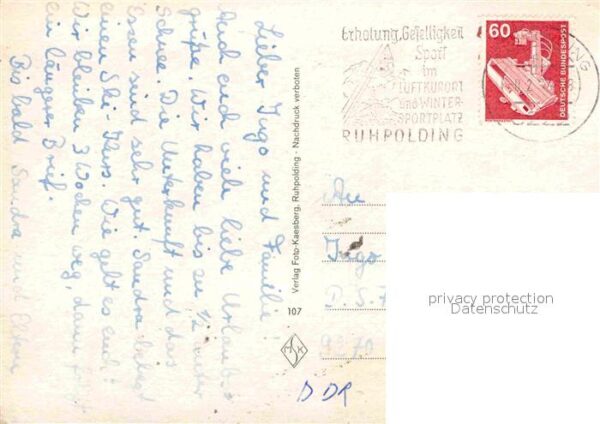 Lieber Ingo und Familie!
Auch euch viele liebe Urlaubs-
grüße. Wir haben bis zu 1/2 Meter
Schnee. Die Unterkunft und das
Essen sind sehr gut. Sandra belegt
einen Ski-Kurs. Wie geht es euch?
Wir bleiben 3 Wochen weg, dann folgt
ein längerer Brief.
Bis bald Sandra und Eltern
Verlag Foto-Kaesberg, Ruhpolding - Nachdruck verboten
107
Erholung, Geselligkeit
Sport
im
LUFTKURORT
und WINTER-
SPORTPLATZ
RUHPOLDING
60
DEUTSCHE BUNDESPOST
An
Ingo
DDR
privacy protection
Datenschutz